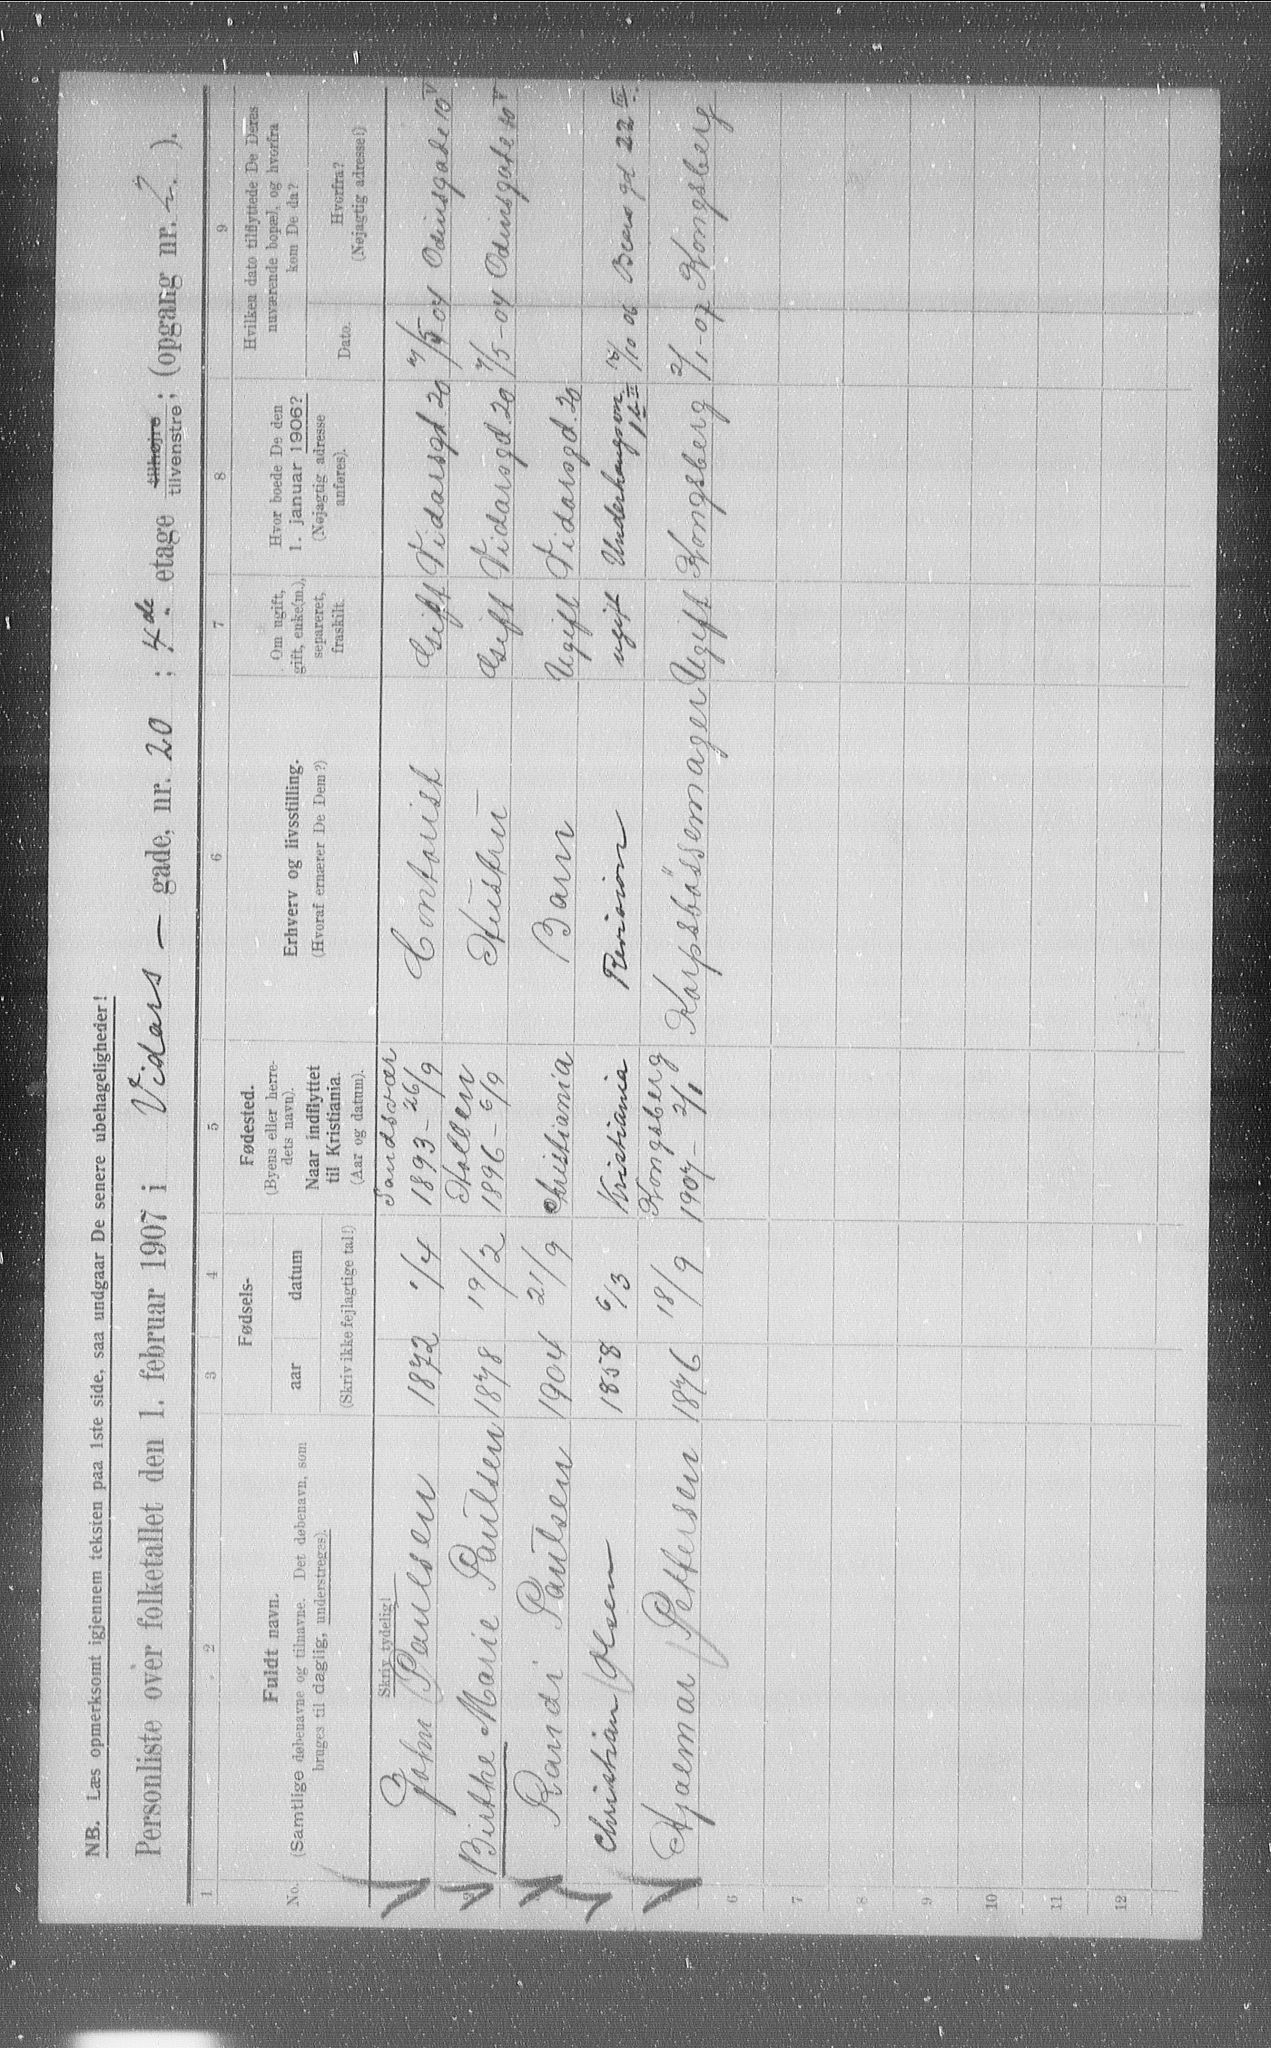 NB. Læs opmerksomt igjennem teksten paa 1ste side, saa undgaar De senere ubehageligheder!
Personliste over folketallet den 1. februar 1907 i Vidars — gade, nr. 20 ; 4de etage tilhøjre tilvenstre; (opgang nr. 2.).
1 2 3 4 5 6 7 8 9
No.
Fuldt navn.
(Samtlige døbenavne og tilnavne. Det døbenavn, som
bruges til daglig, understreges).
Fødsels-
aar datum
(Skriv ikke fejlagtige tal!)
Fødested.
(Byens eller herre-
dets navn).
Naar indflyttet
til Kristiania.
(Aar og datum).
Erhverv og livsstilling.
(Hvoraf ernærer De Dem?)
Om ugift,
gift, enke(m.),
separeret,
fraskilt.
Hvor boede De den
1. januar 1906?
(Nøjagtig adresse
anføres).
Hvilken dato tilflyttede De Deres
nuværende bopæl, og hvorfra
kom De da?
Dato. Hvorfra?
(Nøjagtig adresse!)
Skriv tydelig!
John Paulsen 1872 1/4 Sandsvær 1893 - 26/9 Contorist Gift Vidarsgd. 20 4/5 04 Odinsgade 10 V
Birthe Marie Paulsen 1878 19/2 Holden 1896 - 6/9 Hustru Gift Vidarsgd. 20 4/5 - 04 Odinsgade 10 V
Randi Paulsen 1904 21/9 Christiania Barn Ugift Vidarsgd. 20
Christian Olsen 1858 6/3 Kristiania ugift 06 gd 22 III
Hjalmar Pettersen 1876 18/9 Kongsberg 1907 - 2/1 Korpsbøssemager Ugift Kongsberg 2/1 - 07 Kongsberg
6
7
8
9
10
11
12